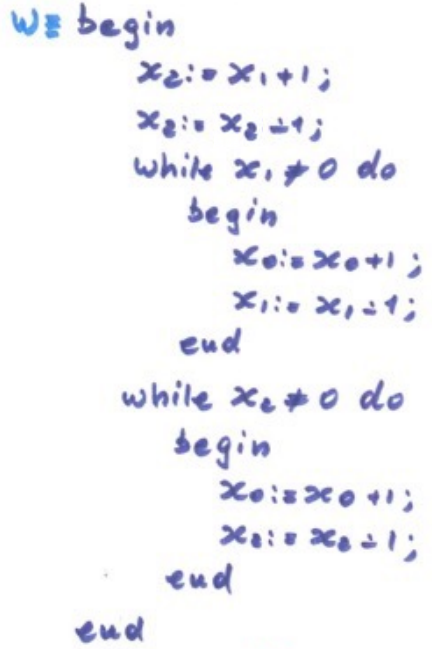 W≡ begin
x₂:= x₁+1;
x₂:= x₂∸1;
while x₁≠0 do
begin
x₀:=x₀+1;
x₁:= x₁∸1;
end
while x₂≠0 do
begin
x₀:=x₀+1;
x₂:= x₂∸1;
end
end